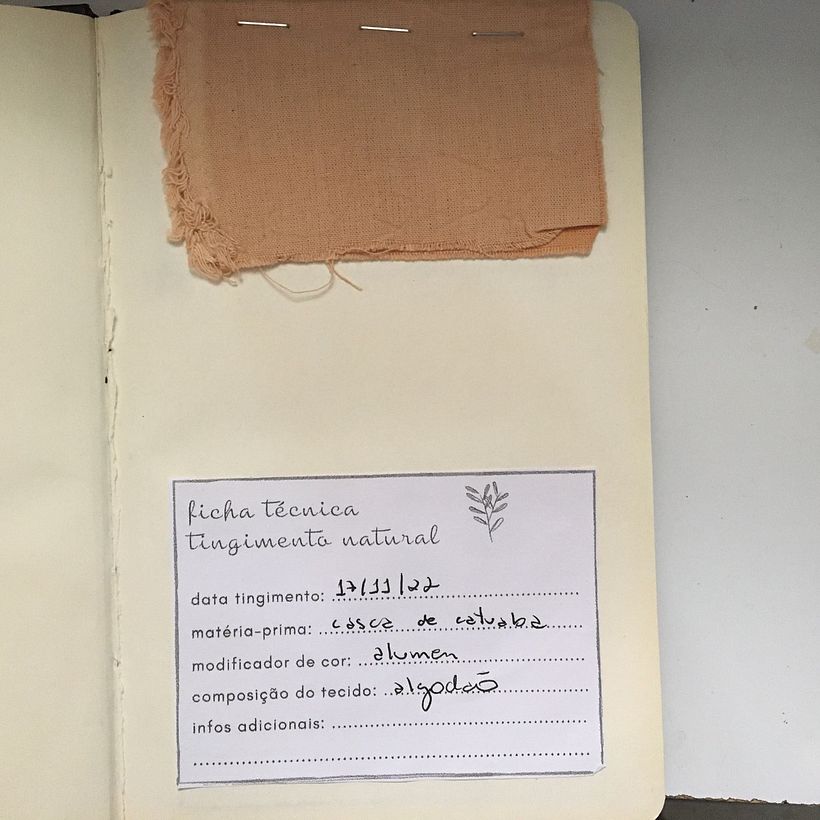 ficha técnica
tingimento natural
data tingimento: 17/11/22
matéria-prima: casca de catuaba
modificador de cor: alumen
composição do tecido: algodão
infos adicionais: